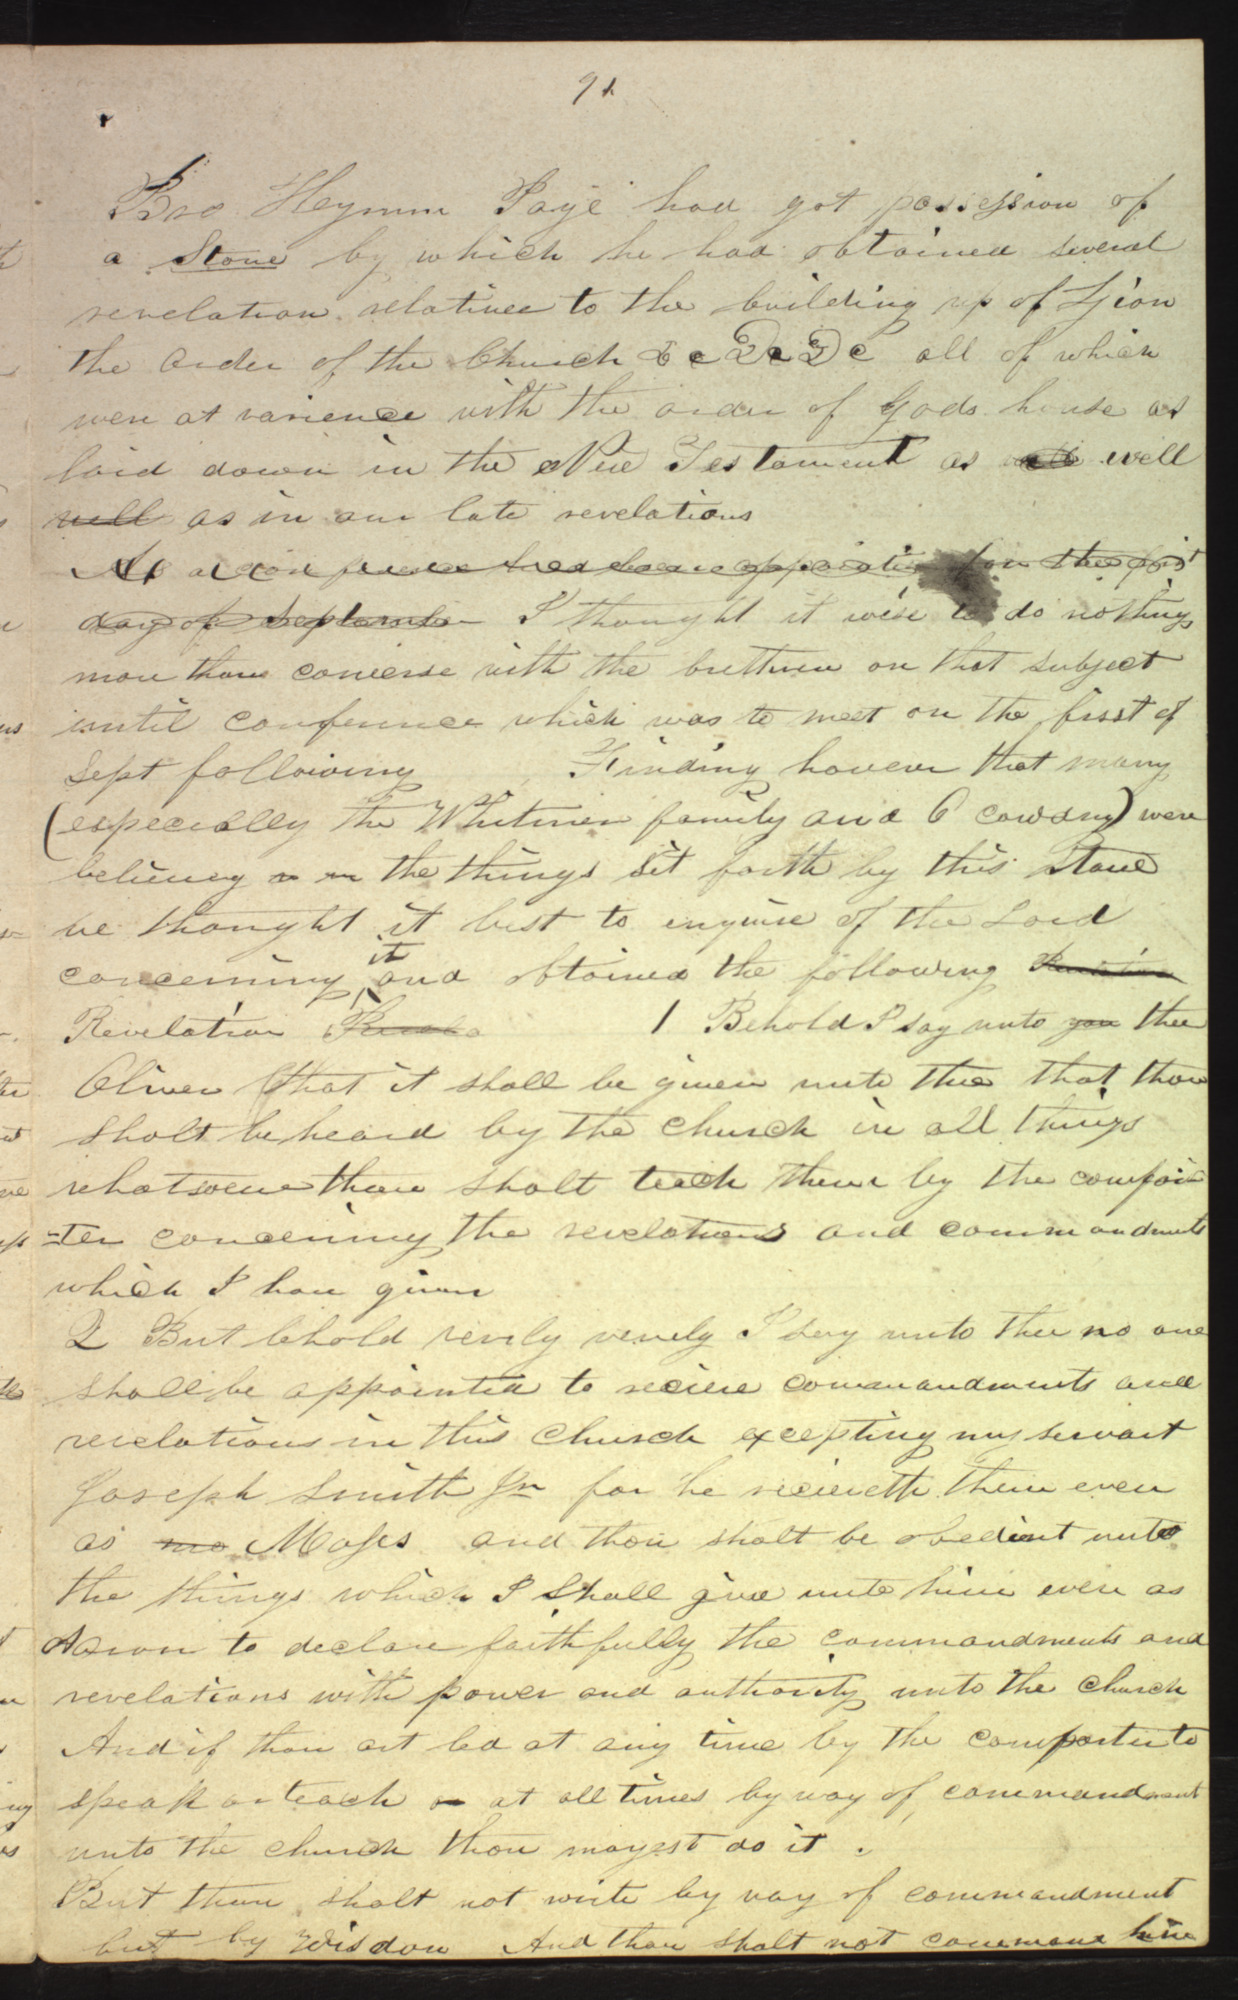 91
Bro Heyrum Page had got possession of
a Stone by which he had obtained several
revelation relative to the building up of Zion
the order of the Church &c &c &c all of which
were at varience with the order of Gods house as
laid down in the New Testament as well
well as in our late revelations
As a conference had been appointed for the first
day of September I thought it wise to do nothing
more than converse with the brethren on that subject
until conference which was to meet on the first of
Sept following Finding however that many
(especially the Whitmer family and O cowdry) were
believing in the things set forth by this Stone
we thought it best to enquire of the Lord
concerning it and obtained the following
Revelation 1 Behold I say unto you thee
Oliver that it shall be given unto thee that thou
shalt be heard by the church in all things
whatsoever thou shalt teach them by the comfor
-ter concerning the revelations and commandments
which I have given
2 But behold verily verily I say unto thee no one
shall be appointed to recieve commandments and
revelations in this church excepting my servant
Joseph Smith Jr for he recieveth them even
as mo Moses and thou shalt be obedient unto
the things which I shall give unto him even as
Aaron to declare faithfully the commandments and
revelations with power and authority unto the church
And if thou art led at any time by the comforter to
speak or teach or at all times by way of commandment
unto the church thou mayest do it .
But thou shalt not write by way of commandment
but by Wisdom And thou shalt not command him